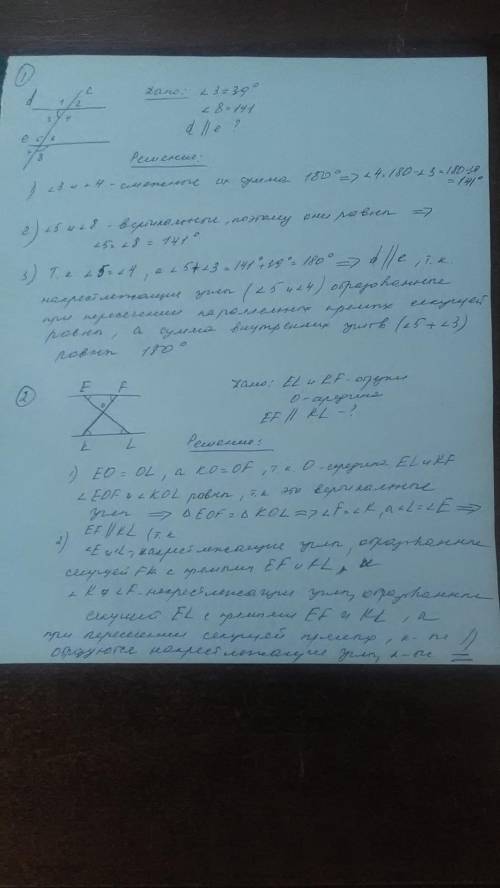 1
d c
1 2
3 4
e 5 6
7 8
Дано: ∠3=39°
∠8=141
d || e ?
Решение:
1) ∠3 и ∠4 - смежные их сумма 180° => ∠4=180-∠3=180-39
=141°
2) ∠5 и ∠8 - вертикальные, поэтому они равны =>
∠5=∠8=141°
3) Т.к ∠5=∠4, а ∠5+∠3=141°+39°=180° => d || e, т.к.
накрестлежащие углы (∠5 и ∠4) образованные
при пересечении параллельных прямых секущей
равны, а сумма внутренних углов (∠5+∠3)
равна 180°
2
E F
O
K L
Дано: EL и KF - отрезки
O - середина
EF || KL - ?
Решение:
1) EO=OL, а KO=OF, т.к O - середина EL и KF
∠EOF и ∠KOL равны, т.к это вертикальные
углы => △EOF=△KOL => ∠F=∠K, а ∠L=∠E =>
EF || KL (т.к
2) ∠E и ∠L, накрестлежащие углы, образованные
секущей FK с прямыми EF и KL, и
∠K и ∠F - накрестлежащие углы, образованные
секущей EL с прямыми EF и KL, а
при пересечении секущей прямых, к-ые ||
образуются накрестлежащие углы, к-ые =